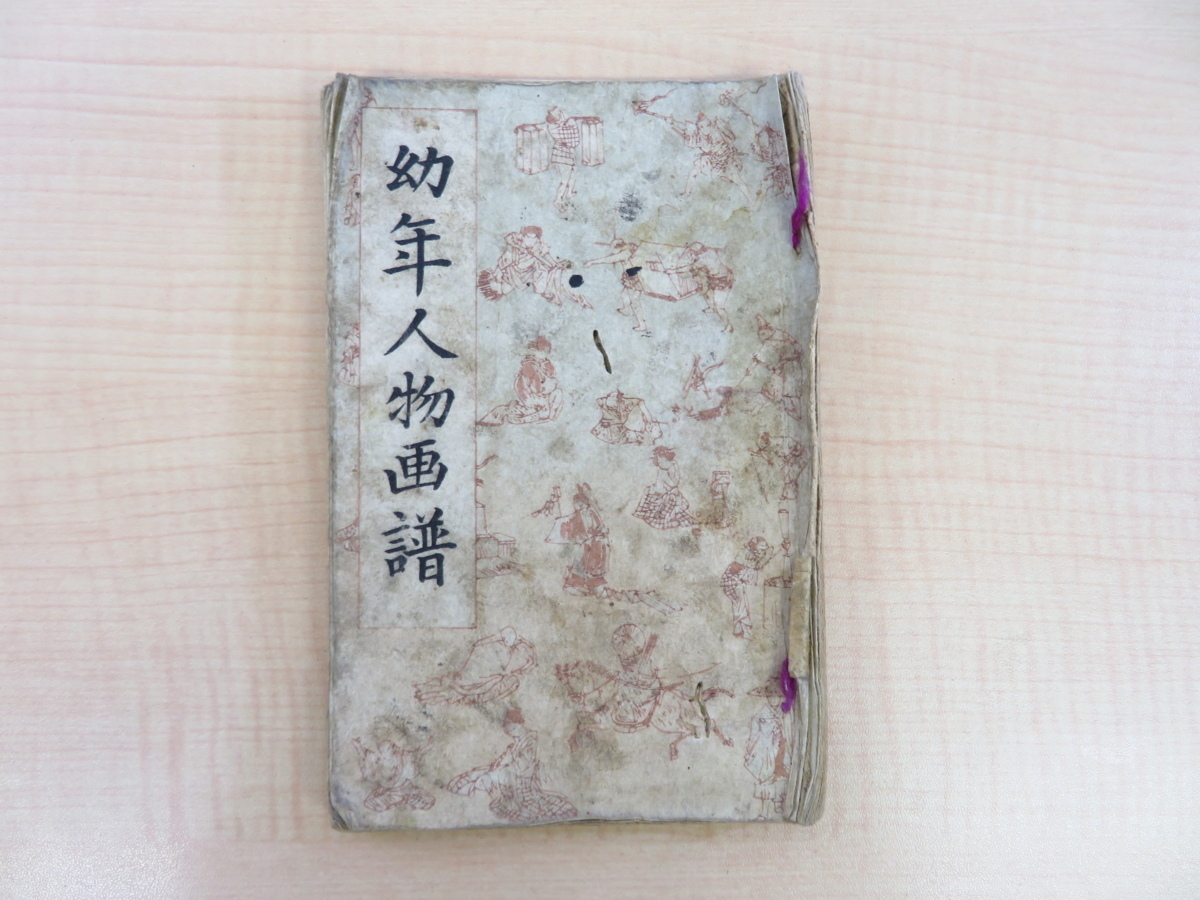 幼年人物画譜